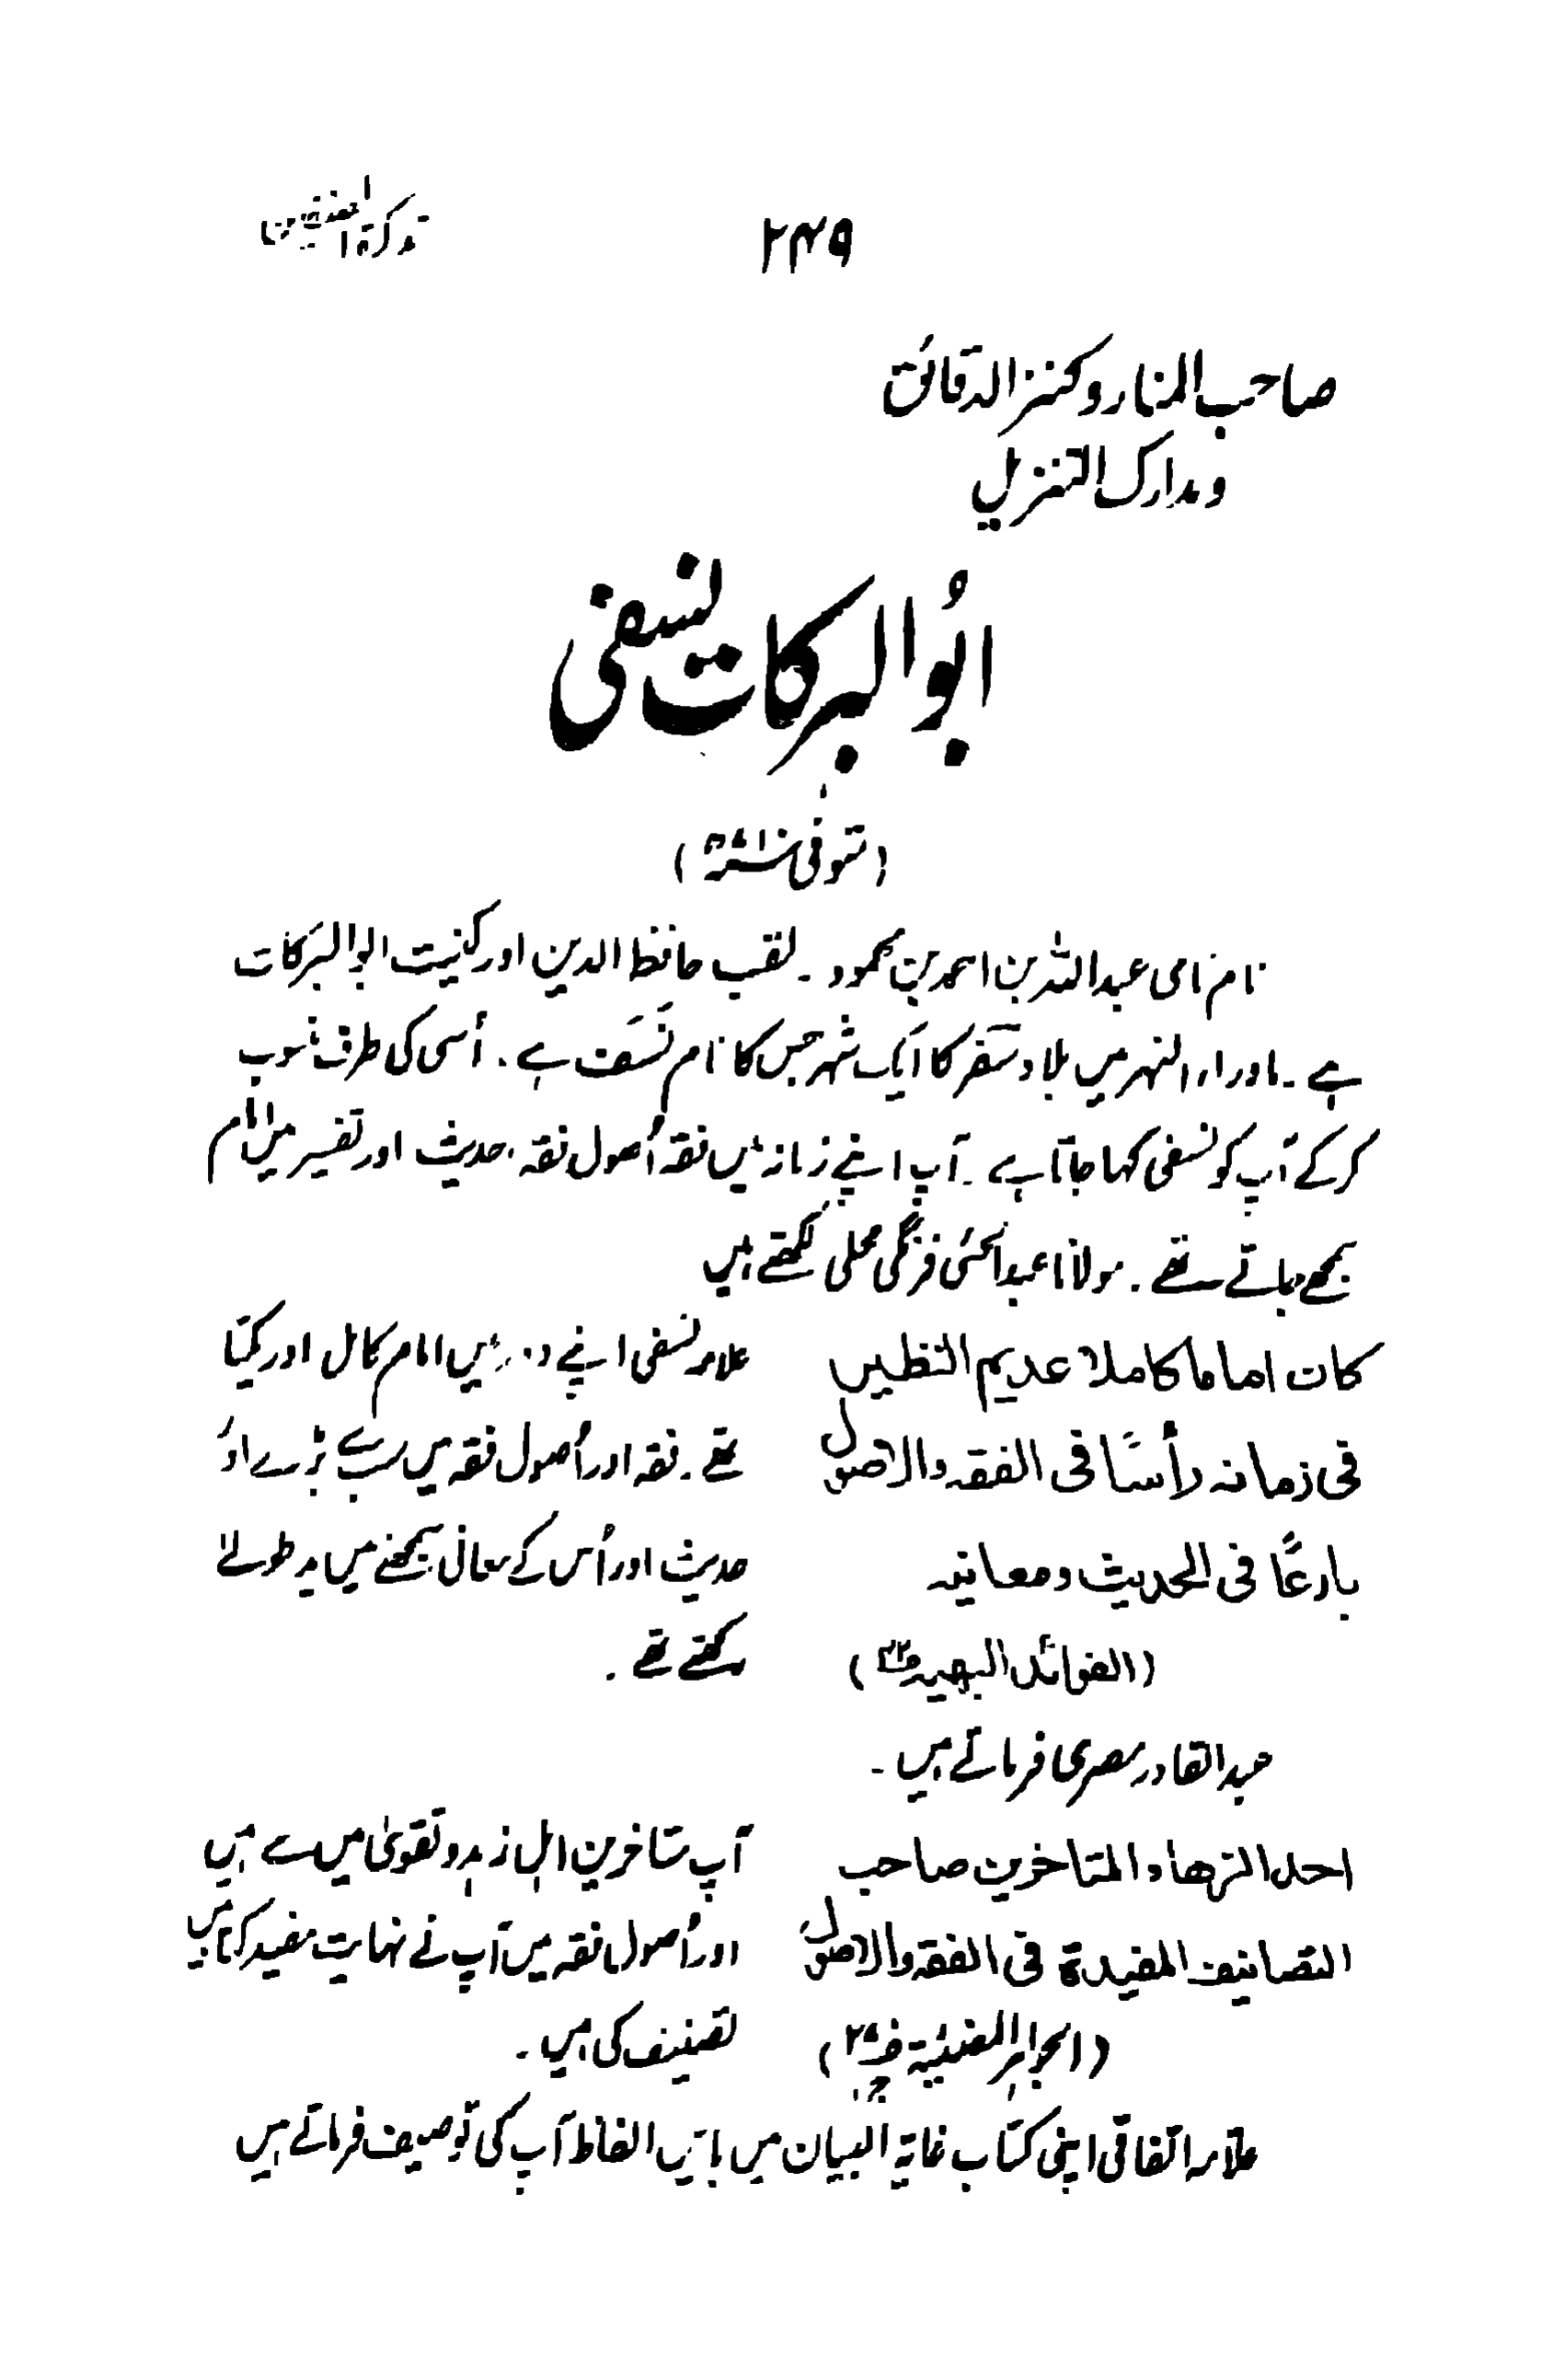 تذکرۃ المصنفین
۲۴۹
صاحب المنار و کنز الدقائق
و مدارک التنزیل
ابُو البرکات نسفی
(متوفی ۷۱۰ھ)
نام نامی عبداللہ بن احمد بن محمود ۔ لقب حافظ الدین اور کنیت ابو البرکات
ہے ۔ ماوراء النہر میں بلاد سغد کا ایک شہر جس کا نام نَسَف ہے ۔ اُسی کی طرف منسوب
کر کے آپ کو نسفی کہا جاتا ہے ۔ آپ اپنے زمانہ میں فقہ اُصول فقہ ، حدیث اور تفسیر میں امام
سمجھے جاتے تھے ۔ مولانا عبدالحئی فرنگی محلی لکھتے ہیں
کان اماما کاملا عدیم النظیر
فی زمانہ رأسًا فی الفقہ والاصول
بارعًا فی الحدیث ومعانیہ
(الفوائد البہیہ)
علامہ نسفی اپنے دور میں امام کامل اور یکتا
تھے ۔ فقہ اور اُصول فقہ میں سب سے بڑے اور
حدیث اور اُس کے معانی سمجھنے میں ید طولےٰ
رکھتے تھے ۔
عبدالقادر مصری فرماتے ہیں ۔
احد الزھاد المتاخرین صاحب
التصانیف المفیدة فی الفقہ والاصول
(الجواہر المضیئۃ)
آپ متاخرین اہل زہد و تقویٰ میں سے ہیں
اور اُصول فقہ میں آپ نے نہایت مفید کتابیں
تصنیف کی ہیں ۔
علامہ اتفاقی اپنی کتاب غایۃ البیان میں بایں الفاظ آپ کی توصیف فرماتے ہیں